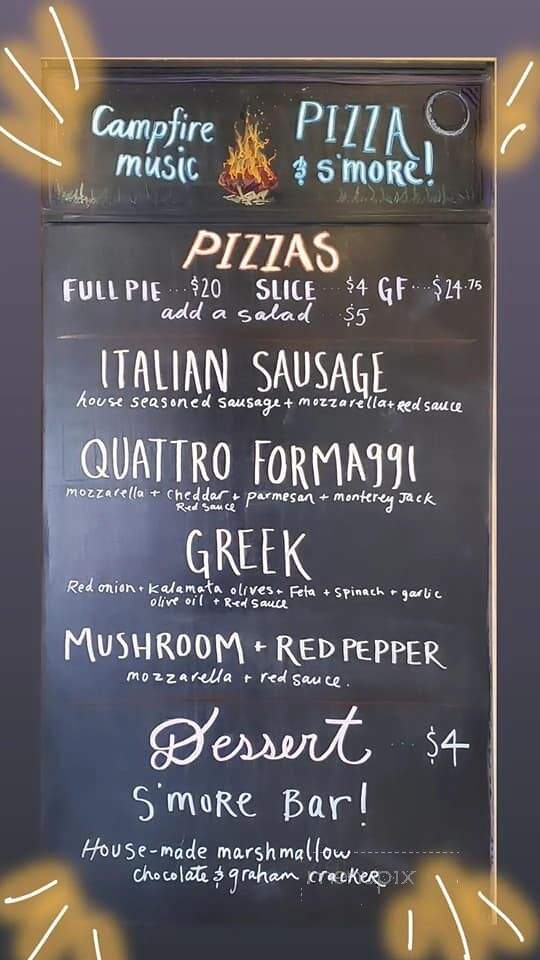 Campfire music
PIZZA & S'MORE!
PIZZAS
FULL PIE ... $20 SLICE ... $4 GF ... $24.75
add a salad $5
ITALIAN SAUSAGE
house seasoned sausage + mozzarella + red sauce
QUATTRO FORMAGGI
mozzarella + cheddar + parmesan + monterey Jack
Red sauce
GREEK
Red onion + Kalamata olives + Feta + Spinach + garlic
olive oil + Red sauce
MUSHROOM + RED PEPPER
mozzarella + red sauce.
Dessert ... $4
S'MORE Bar!
House-made marshmallow
chocolate & graham cracker
menupix